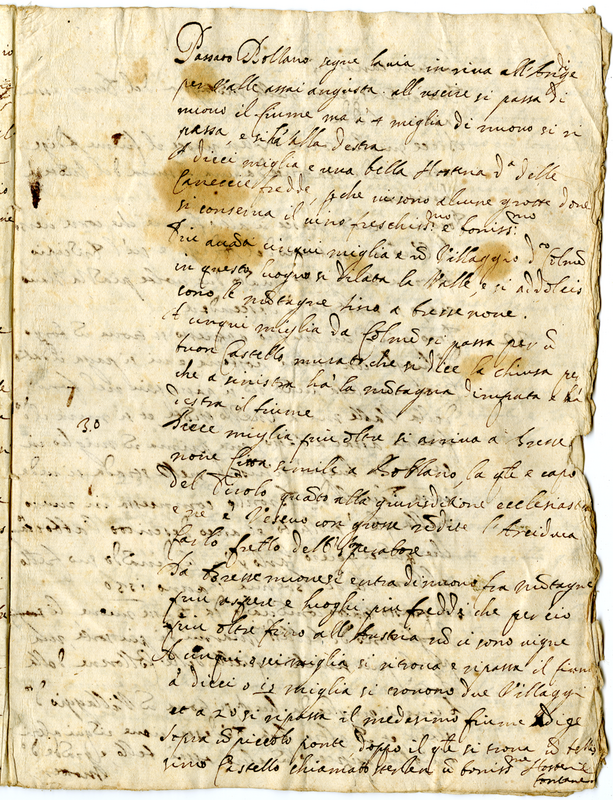 Passato Bollano segue la via in riva all'Adige
per Valle assai angusta. all'uscire si passa di
nuovo il fiume ma a 4 miglia di nuovo si ri
passa, e si hà alla destra
A dieci miglia e una bella Hosteria d.ª delle
Caneccie fredde, che vi sono alcune grotte done
si conserva il vino freschiss.mo e boniss.mo
Più avā cinque miglia e ū Villaggio d.to Colmā
in questo luogo si dilata la Valle, e si addolcis
cono le mōtagne sino a Bressenone.
A cinque miglia da Colmā si passa per ū
buon Castello murato che si dice la chiusa per
che a sinistra hà la mōtagna d'impata e hà
destra il fiume
30
Diece miglia più oltre si arriva a Bresse
none Città simile a Bollano, la qle e capo
del Tirolo quāto alla giurisditione ecclesiast
e vi è Vescovo con grosse rēdite l'Arciduca
Carlo frello dell'Imperatore
Da Bressenone si entra di nuovo fra mōtagne
più aspere e luoghi più freddi che per ciò
più oltre fino all'Austria nō ci sono vigne
A cinque o sei miglia si ritrova e ripassa il fiume
à dieci o 12 miglia si trovono due Villaggi
et a 20 si ripassa il medesimo fiume Adige
sopra ū piccolo ponte doppo il qle si trova ū bellis
simo Castello chiamato Sterzen ū boniss.me Hosterie
fontane